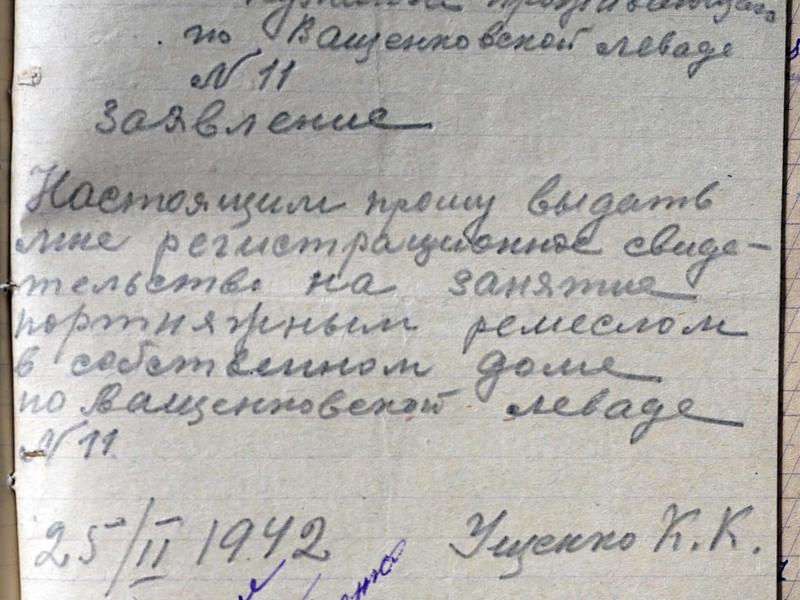 проживающего
по Ващенковской леваде
N 11
Заявление
Настоящим прошу выдать
мне регистрационное свиде-
тельство на занятие
портняжным ремеслом
в собственном доме
по Ващенковской леваде
N 11
25/II 1942 Ущенко К.К.